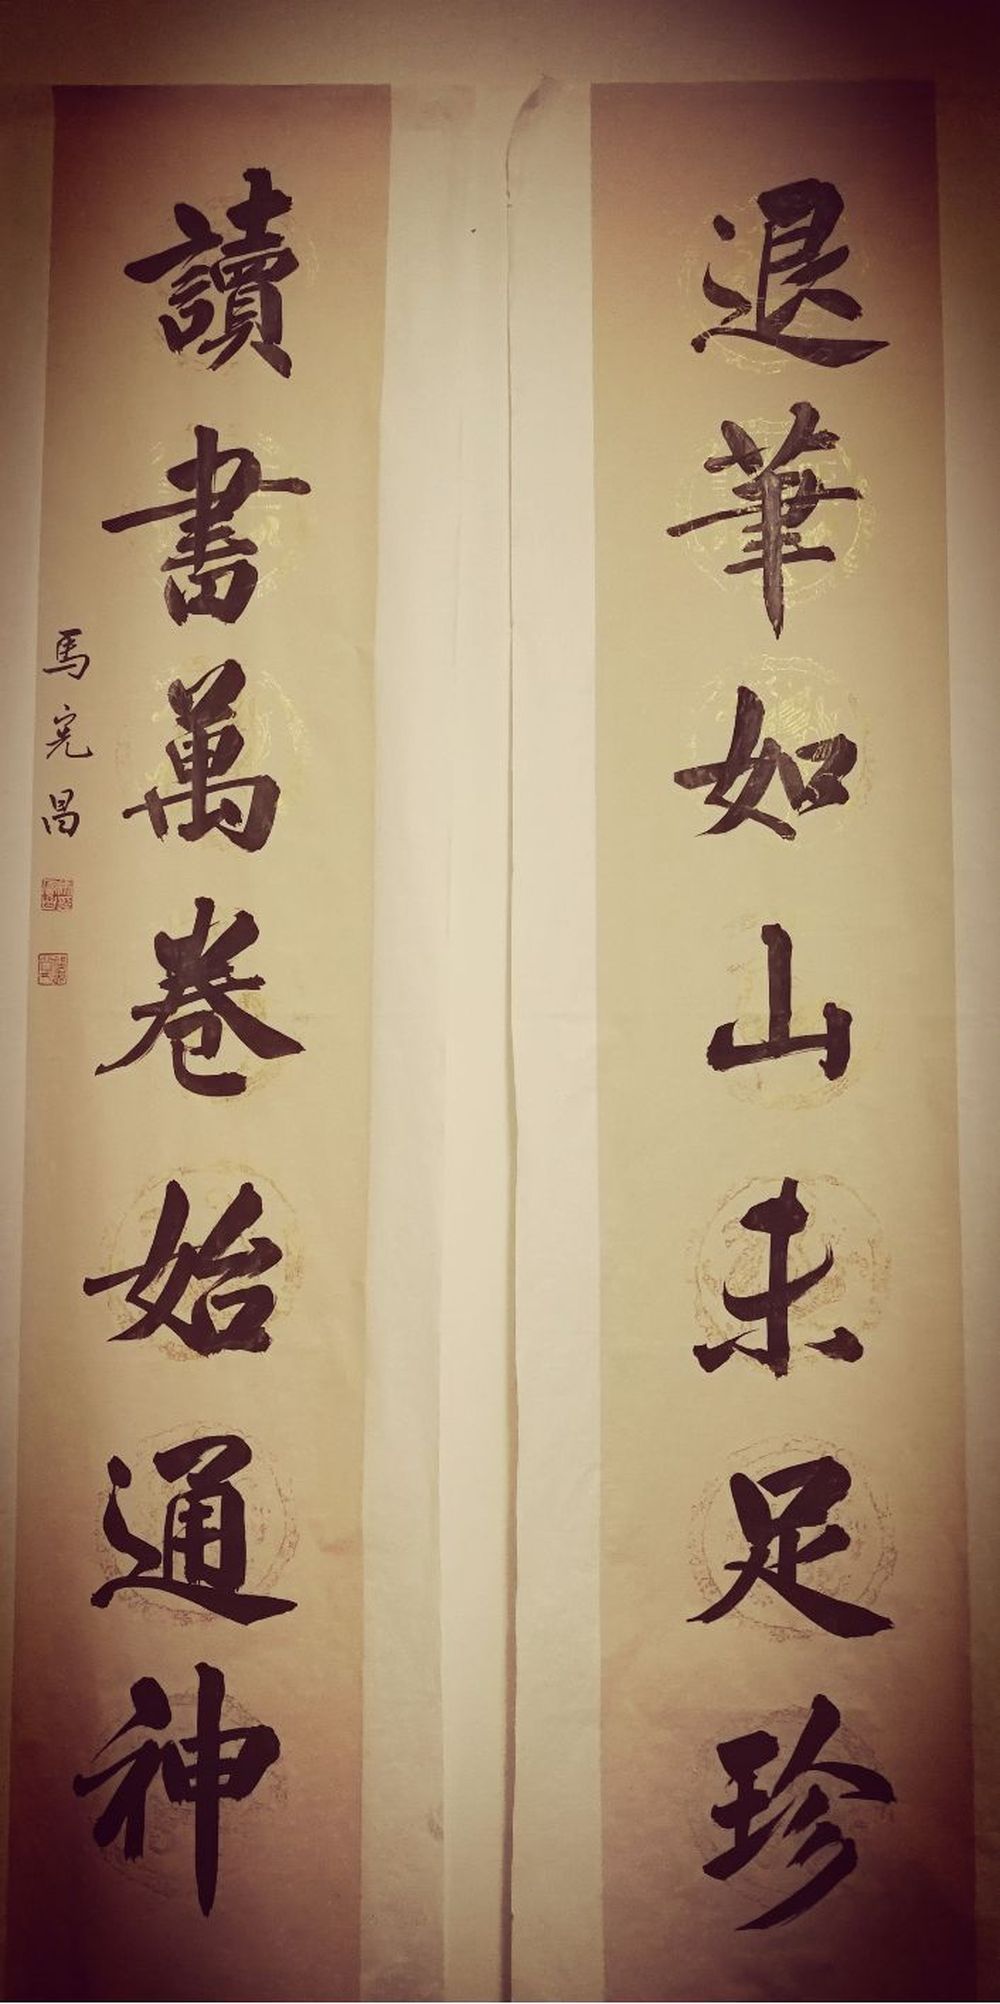 退筆如山未足珍
讀書萬卷始通神
馬完昌